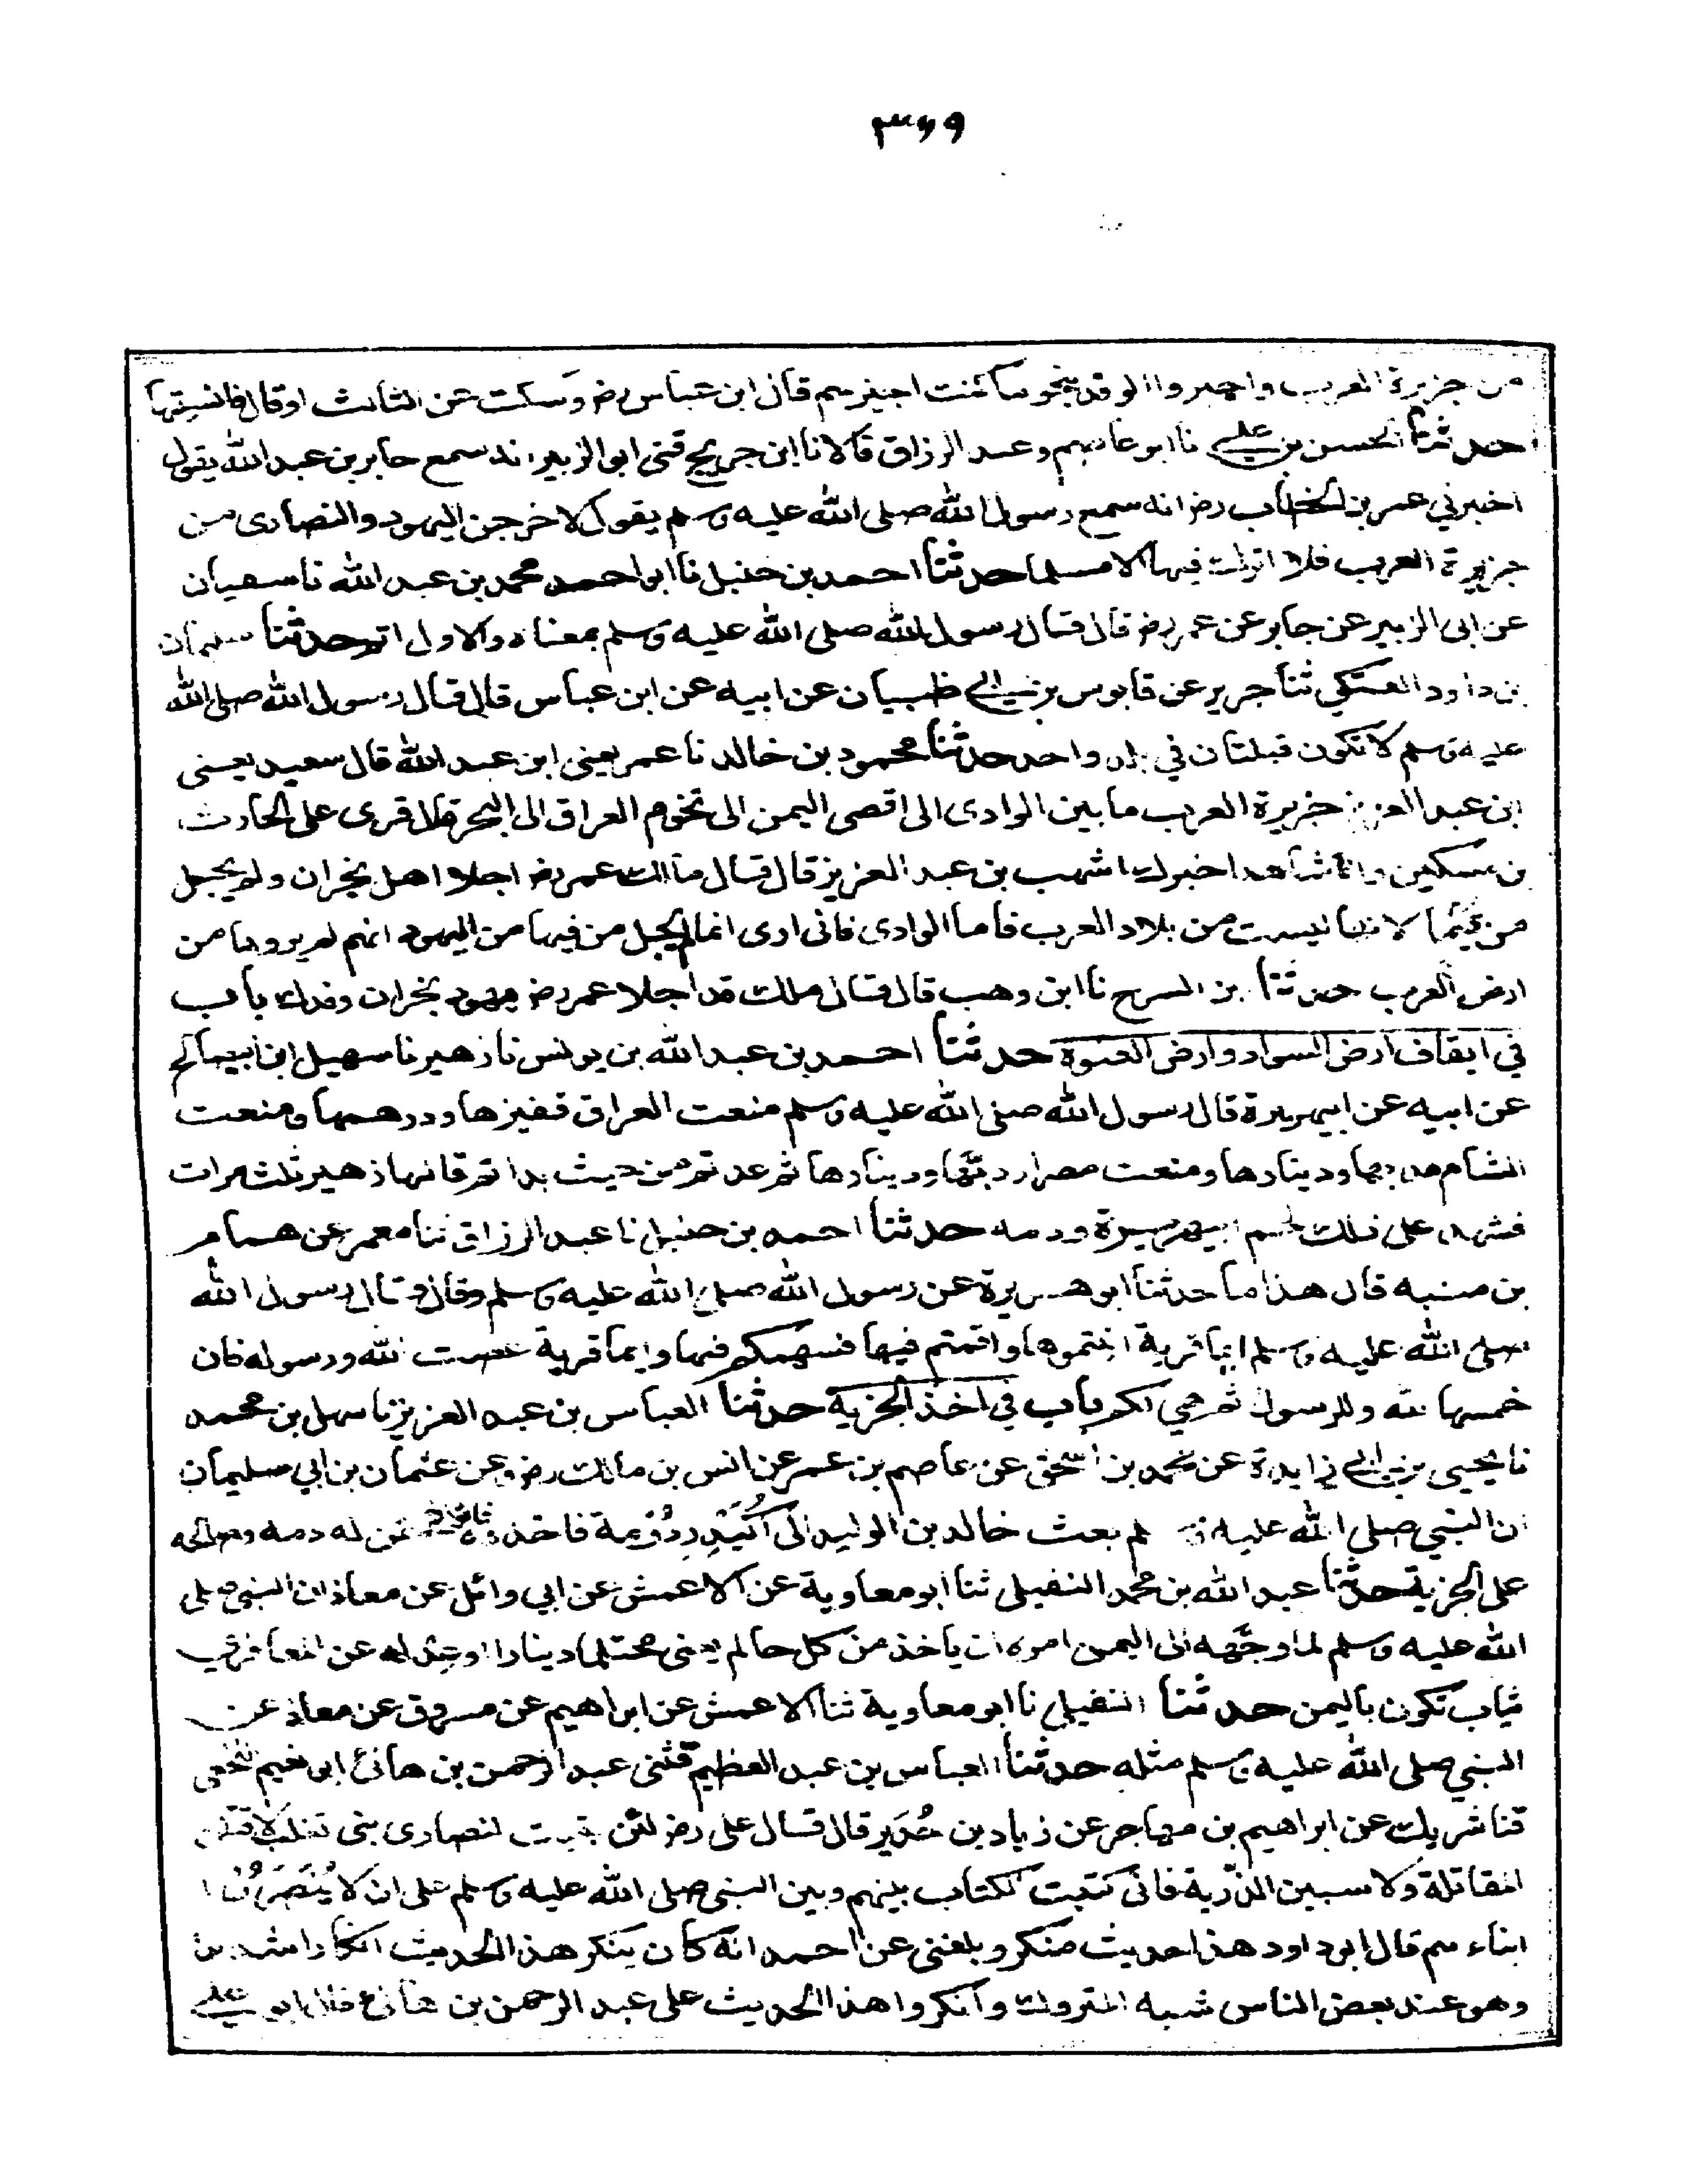 ٣٦٩
من جزيرة العرب واجيزوا الوفد بنحو ما كنت اجيزهم قال ابن عباس رضـ وسكت عن الثالث او قال فانسيتها
حدثنا الحسن بن علي نا ابو عاصم وعبد الرزاق قالا نا ابن جريج قثنى ابو الزبير انه سمع جابر بن عبد الله يقول
اخبرني عمر بن الخطاب رضـ انه سمع رسول الله صلى الله عليه وسلم يقول لاخرجن اليهود والنصارى من
جزيرة العرب فلا اترك فيها الا مسلما حدثنا احمد بن حنبل نا ابو احمد محمد بن عبد الله نا سفيان
عن ابى الزبير عن جابر عن عمر رضـ قال قال رسول الله صلى الله عليه وسلم بمعناه والاول اتم حدثنا سليمان
بن داود العتكي ثنا جرير عن قابوس بن ابي ظبيان عن ابيه عن ابن عباس قال قال رسول الله صلى الله
عليه وسلم لا تكون قبلتان في بلد واحد حدثنا محمود بن خالد نا عمر يعنى ابن عبد الله قال سعيد يعنى
ابن عبد العزيز جزيرة العرب ما بين الوادى الى اقصى اليمن الى تخوم العراق الى البحر قال قرى على الحارث
بن مسكين وانا شاهد اخبرك اشهب بن عبد العزيز قال قال مالك عمر رضـ اجلا اهل نجران ولم يجل
من تيما لانها ليست من بلاد العرب فاما الوادى فانى ارى انما لم يجل من فيها من اليهود انهم لم يروها من
ارض العرب حدثنا بن السرح نا ابن وهب قال قال ملك قد اجلا عمر رضـ يهود نجران وفدك باب
في ايقاف ارض السواد وارض العنوة حدثنا احمد بن عبد الله بن يونس نا زهير نا سهيل ابن ابي صالح
عن ابيه عن ابي هريرة قال رسول الله صلى الله عليه وسلم منعت العراق قفيزها ودرهمها ومنعت
الشام مديها ودينارها ومنعت مصر اردبها ودينارها ثم عدتم من حيث بداتم قالها زهير ثلث مرات
فشهد على ذلك لحم ابي هريرة ودمه حدثنا احمد بن حنبل نا عبد الرزاق ثنا معمر عن همام
بن منبه قال هذا ما حدثنا ابو هريرة عن رسول الله صلى الله عليه وسلم وقال قال رسول الله
صلى الله عليه وسلم ايما قرية اتيتموها واقمتم فيها فسهمكم فيها وايما قرية عصت الله ورسوله فان
خمسها لله وللرسول ثم هي لكم باب في اخذ الجزية حدثنا العباس بن عبد العزيز نا سهل بن محمد
نا يحيى بن ابي زايدة عن محمد بن اسحق عن عاصم بن عمر عن انس بن مالك رضـ وعن عثمان بن ابي سليمان
ان النبي صلى الله عليه وسلم بعث خالد بن الوليد الى اُكَيْدِرِ دُوْمة فاخذوه فاتوا به فحقن له دمه وصالحه
على الجزية حدثنا عبد الله بن محمد النفيلى ثنا ابو معاوية عن الاعمش عن ابي وائل عن معاذ ان النبي صلى
الله عليه وسلم لما وجّهه الى اليمن امره ان ياخذ من كل حالم يعنى محتلما دينارا او عِدله عن المعافري
ثياب تكون باليمن حدثنا النفيلى نا ابو معاوية ثنا الاعمش عن ابراهيم عن مسروق عن معاذ عن
النبي صلى الله عليه وسلم مثله حدثنا العباس بن عبد العظيم قثنى عبد الرحمن بن هانئ ابو نعيم النخعى
قثنا شريك عن ابراهيم بن مهاجر عن زياد بن حُدَير قال قال على رضـ لئن بقيت لنصارى بنى تغلب لاقتلن
المقاتلة ولاسبين الذرّية فانى كتبت الكتاب بينهم وبين النبى صلى الله عليه وسلم على ان لا يُنَصِّرُوْا
ابناءهم قال ابو داود هذا حديث منكر وبلغنى عن احمد انه كان ينكر هذا الحديث انكارا شديدا
وهو عند بعض الناس شبه المتروك وانكروا هذا الحديث على عبد الرحمن بن هانئ قال ابو علي